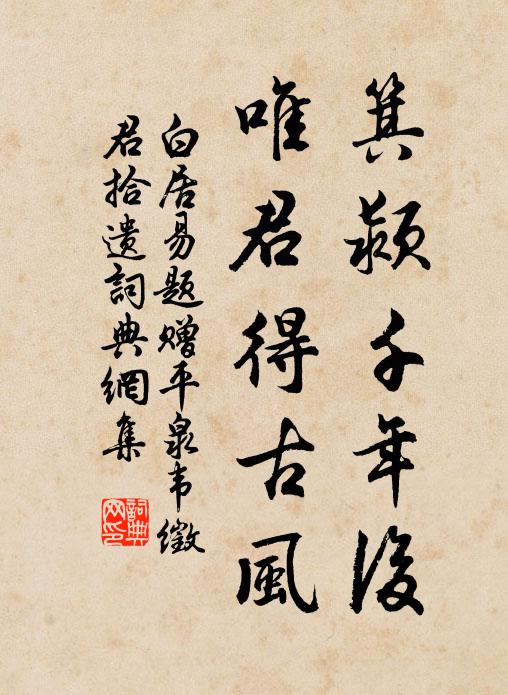 箕颍千年後
唯君得古風
白居易題贈平泉韦徵
君拾遺詞典網集
詞典
网印